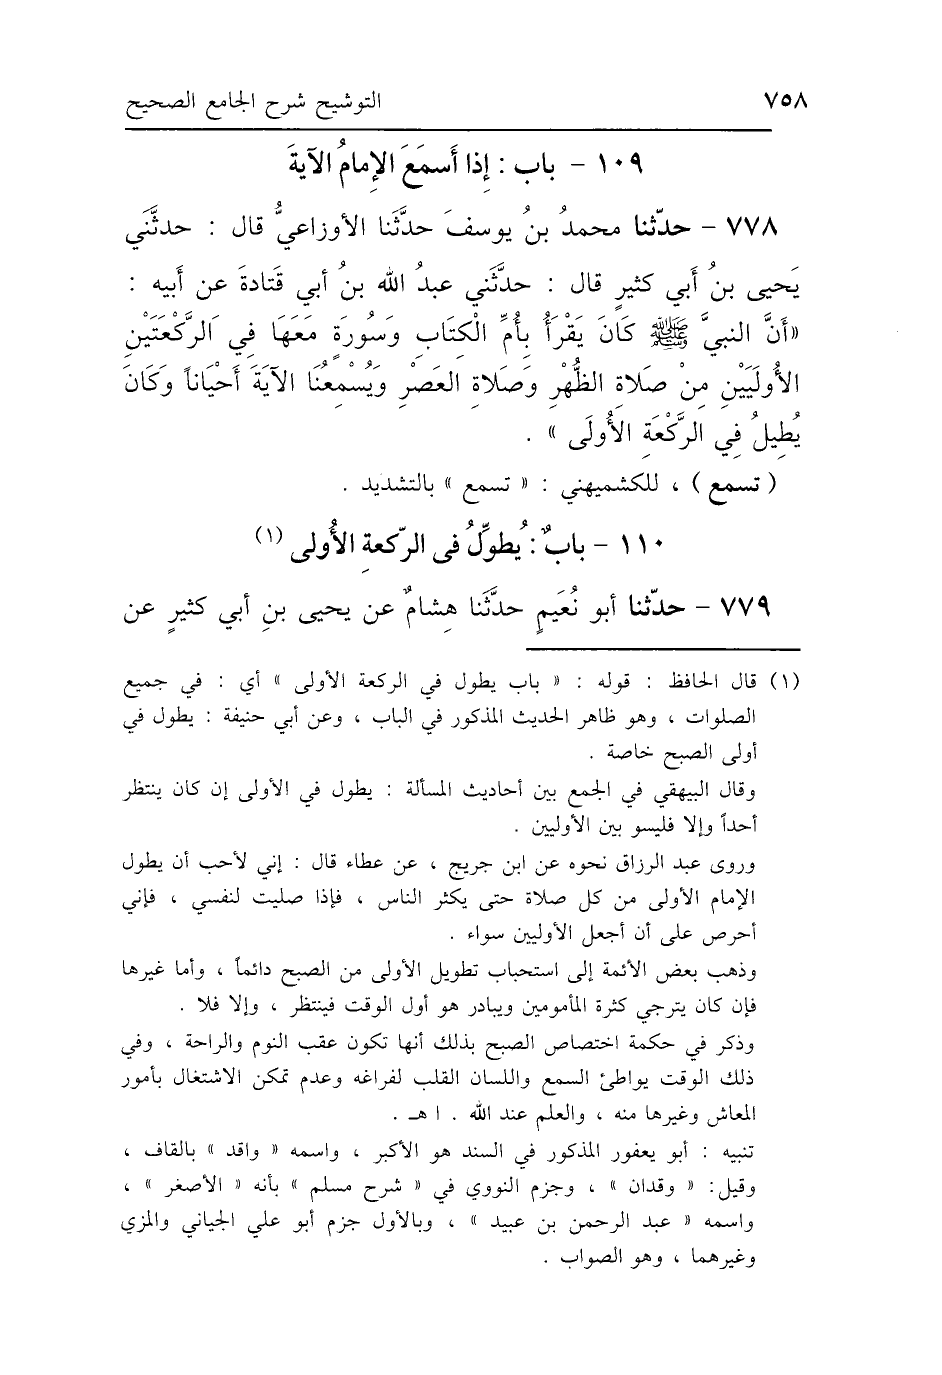 ٧٥٨ التوشيح شرح الجامع الصحيح
١٠٩ - باب : إِذا أَسمَعَ الإِمامُ الآيةَ
٧٧٨ - حدّثنا محمدُ بنُ يوسفَ حدَّثَنا الأوزاعيُّ قال : حدثَّنَي
يَحيى بنُ أَبي كثيرٍ قال : حدثَّنَي عبدُ الله بنُ أبي قَتادةَ عن أبيه :
«أَنَّ النبيَّ ﷺ كَانَ يَقْرَأُ بِأُمِّ الْكِتَابِ وَسُورَةٍ مَعَهَا فِي اَلرَّكْعَتَيْنِ
الأُولَيَيْنِ مِنْ صَلاَةِ الظُّهْرِ وَصَلاَةِ العَصْرِ وَيُسْمِعُنَا الآيَةَ أَحْيَاناً وَكَانَ
يُطِيلُ فِي الرَّكْعَةِ الأُولَى » .
( تسمع ) ، للكشميهني : « تسمع » بالتشديد .
١١٠ - بابٌ : يُطوِّلُ فى الرّكعةِ الأُولى (١)
٧٧٩ - حدّثنا أبو نُعَيمٍ حدَّثَنا هِشامٌ عن يحيى بنِ أبي كثيرٍ عن
(١) قال الحافظ : قوله : « باب يطول في الركعة الأولى » أي : في جميع
الصلوات ، وهو ظاهر الحديث المذكور في الباب ، وعن أبي حنيفة : يطول في
أولى الصبح خاصة .
وقال البيهقي في الجمع بين أحاديث المسألة : يطول في الأولى إن كان ينتظر
أحداً وإلا فليسو بين الأوليين .
وروى عبد الرزاق نحوه عن ابن جريج ، عن عطاء قال : إني لأحب أن يطول
الإمام الأولى من كل صلاة حتى يكثر الناس ، فإذا صليت لنفسي ، فإني
أحرص على أن أجعل الأوليين سواء .
وذهب بعض الأئمة إلى استحباب تطويل الأولى من الصبح دائماً ، وأما غيرها
فإن كان يترجي كثرة المأمومين ويبادر هو أول الوقت فينتظر ، وإلا فلا .
وذكر في حكمة اختصاص الصبح بذلك أنها تكون عقب النوم والراحة ، وفي
ذلك الوقت يواطئ السمع واللسان القلب لفراغه وعدم تمكن الاشتغال بأمور
المعاش وغيرها منه ، والعلم عند الله . ا هـ .
تنبيه : أبو يعفور المذكور في السند هو الأكبر ، واسمه « واقد » بالقاف ،
وقيل: « وقدان » ، وجزم النووي في « شرح مسلم » بأنه « الأصغر » ،
واسمه « عبد الرحمن بن عبيد » ، وبالأول جزم أبو علي الجياني والمزي
وغيرهما ، وهو الصواب .